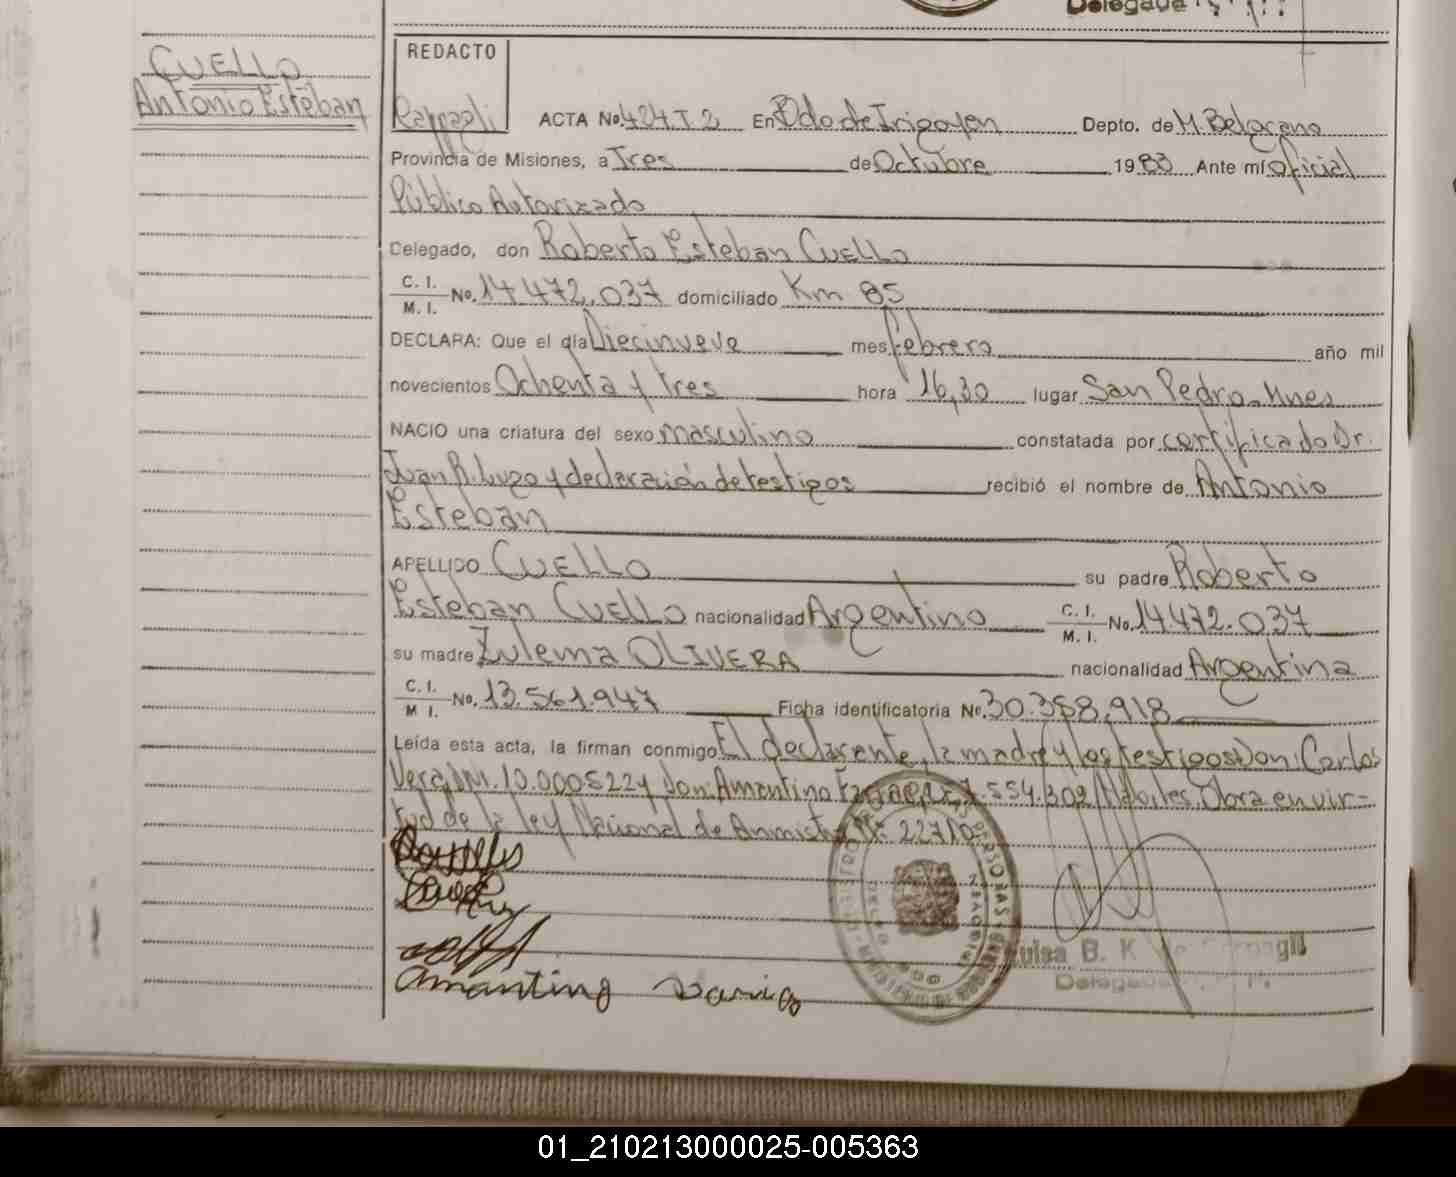 Delegada
CUELLO
Antonio Esteban
REDACTO
ACTA No. 424 T 2 En Bdo de Irigoyen Depto. de M. Belgrano
Provincia de Misiones, a Tres de Octubre 1983 Ante mí Oficial
Público Autorizado
Delegado, don Roberto Esteban CUELLO
C. I.
M. I. No. 14.472.037 domiciliado Km 85
DECLARA: Que el día Diecinueve mes febrero año mil
novecientos Ochenta y tres hora 16,30 lugar San Pedro - Mnes
NACIO una criatura del sexo masculino constatada por certificado Dr.
Juan R. Lugo y declaración de testigos recibió el nombre de Antonio
Esteban
APELLIDO CUELLO su padre Roberto
Esteban CUELLO nacionalidad Argentino C. I.
M. I. No. 14.472.037
su madre Zulema OLIVERA nacionalidad Argentina
C. I.
M I. No. 13.561.947 Ficha identificatoria No. 30.358.918
Leída esta acta, la firman conmigo El declarante, la madre y los testigos Don: Carlos
Vera, DNI. 10.000522 y Don: Amantino 7.554.302 Hábiles. Obra en vir-
tud de la ley Nacional de Anmistía Nº 22710
Amantino
Luisa B. K. de
Delegada
01_210213000025-005363